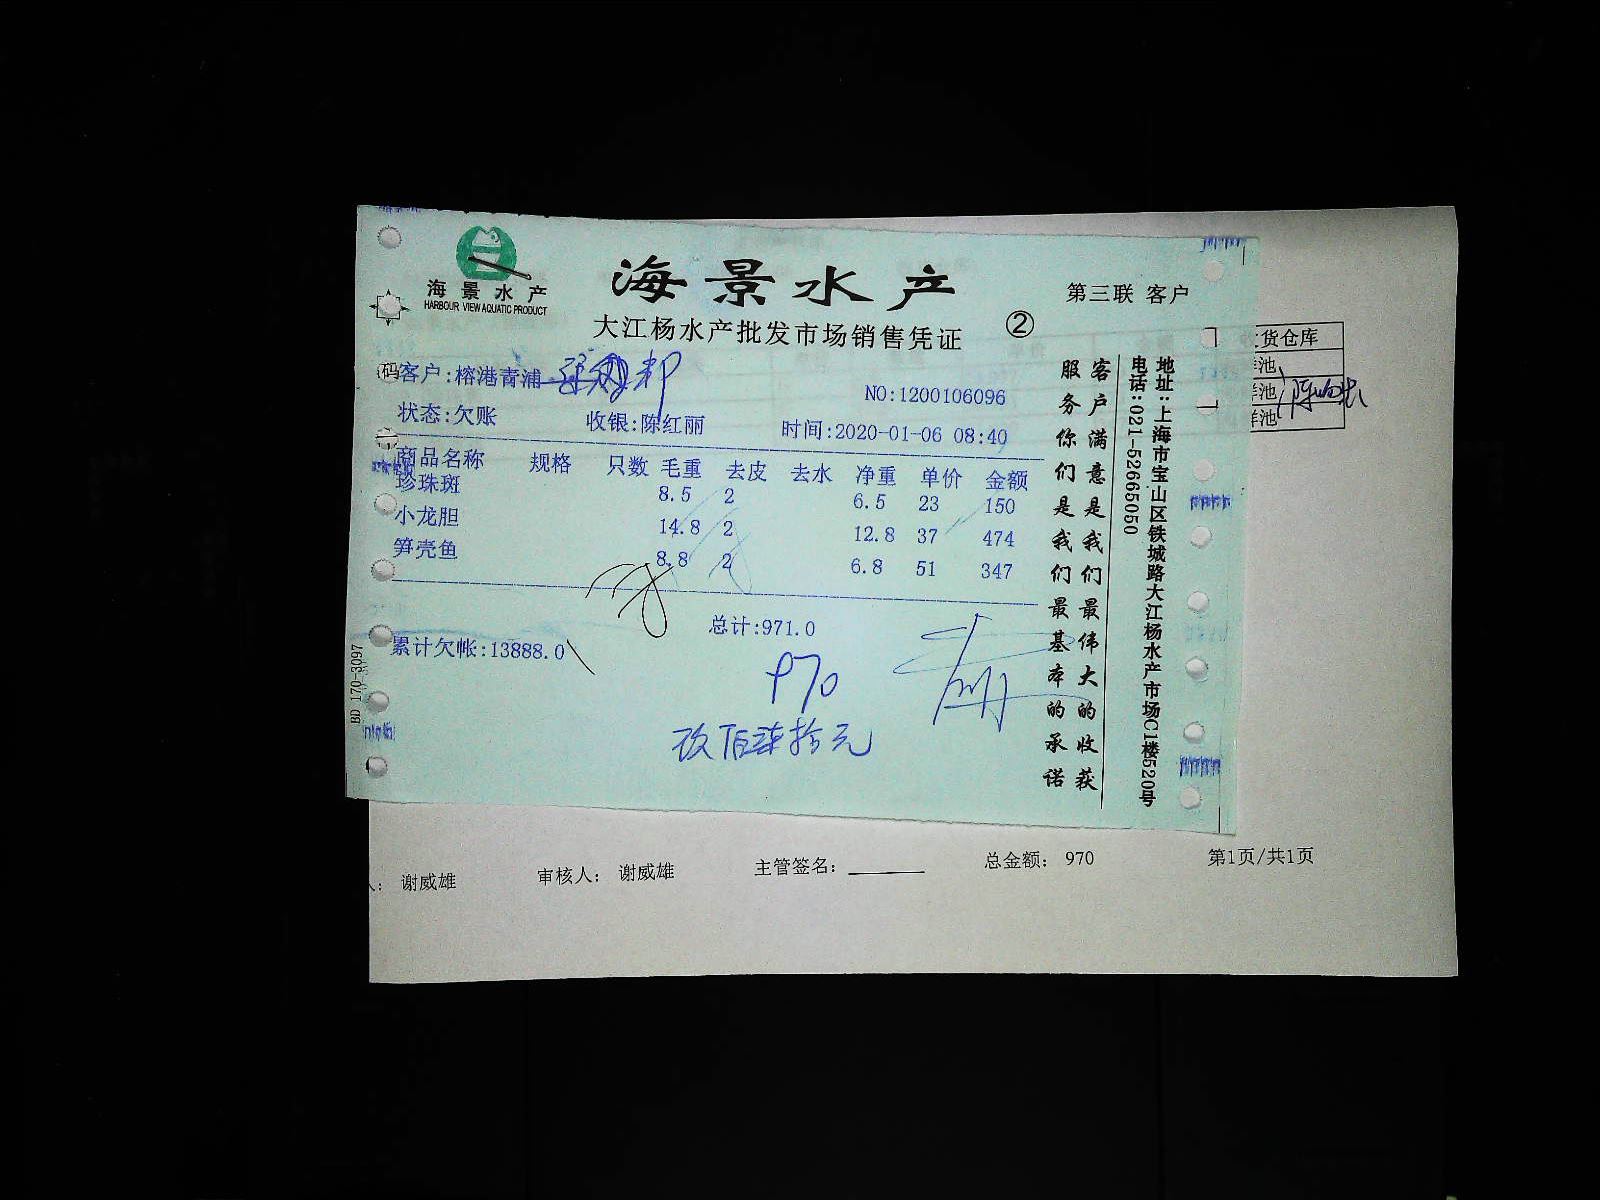 海景水产
HARBOUR VIEW AQUATIC PRODUCT
海景水产
大江杨水产批发市场销售凭证
②
第三联 客户
码
客户:榕港青浦
NO:1200106096
状态:欠账 收银:陈红丽 时间:2020-01-06 08:40
商品名称 规格 只数 毛重 去皮 去水 净重 单价 金额
珍珠斑 8.5 2 6.5 23 150
小龙胆 14.8 2 12.8 37 474
笋壳鱼 8.8 2 6.8 51 347
总计:971.0
累计欠帐:13888.0
970
玖佰柒拾元
客户满意是我们最伟大的收获
服务你们是我们最基本的承诺
地址:上海市宝山区铁城路大江杨水产市场C1楼520号
电话:021-52665050
BD 170-3097
货仓库
池
池
池
谢威雄 审核人: 谢威雄 主管签名: 总金额: 970 第1页/共1页